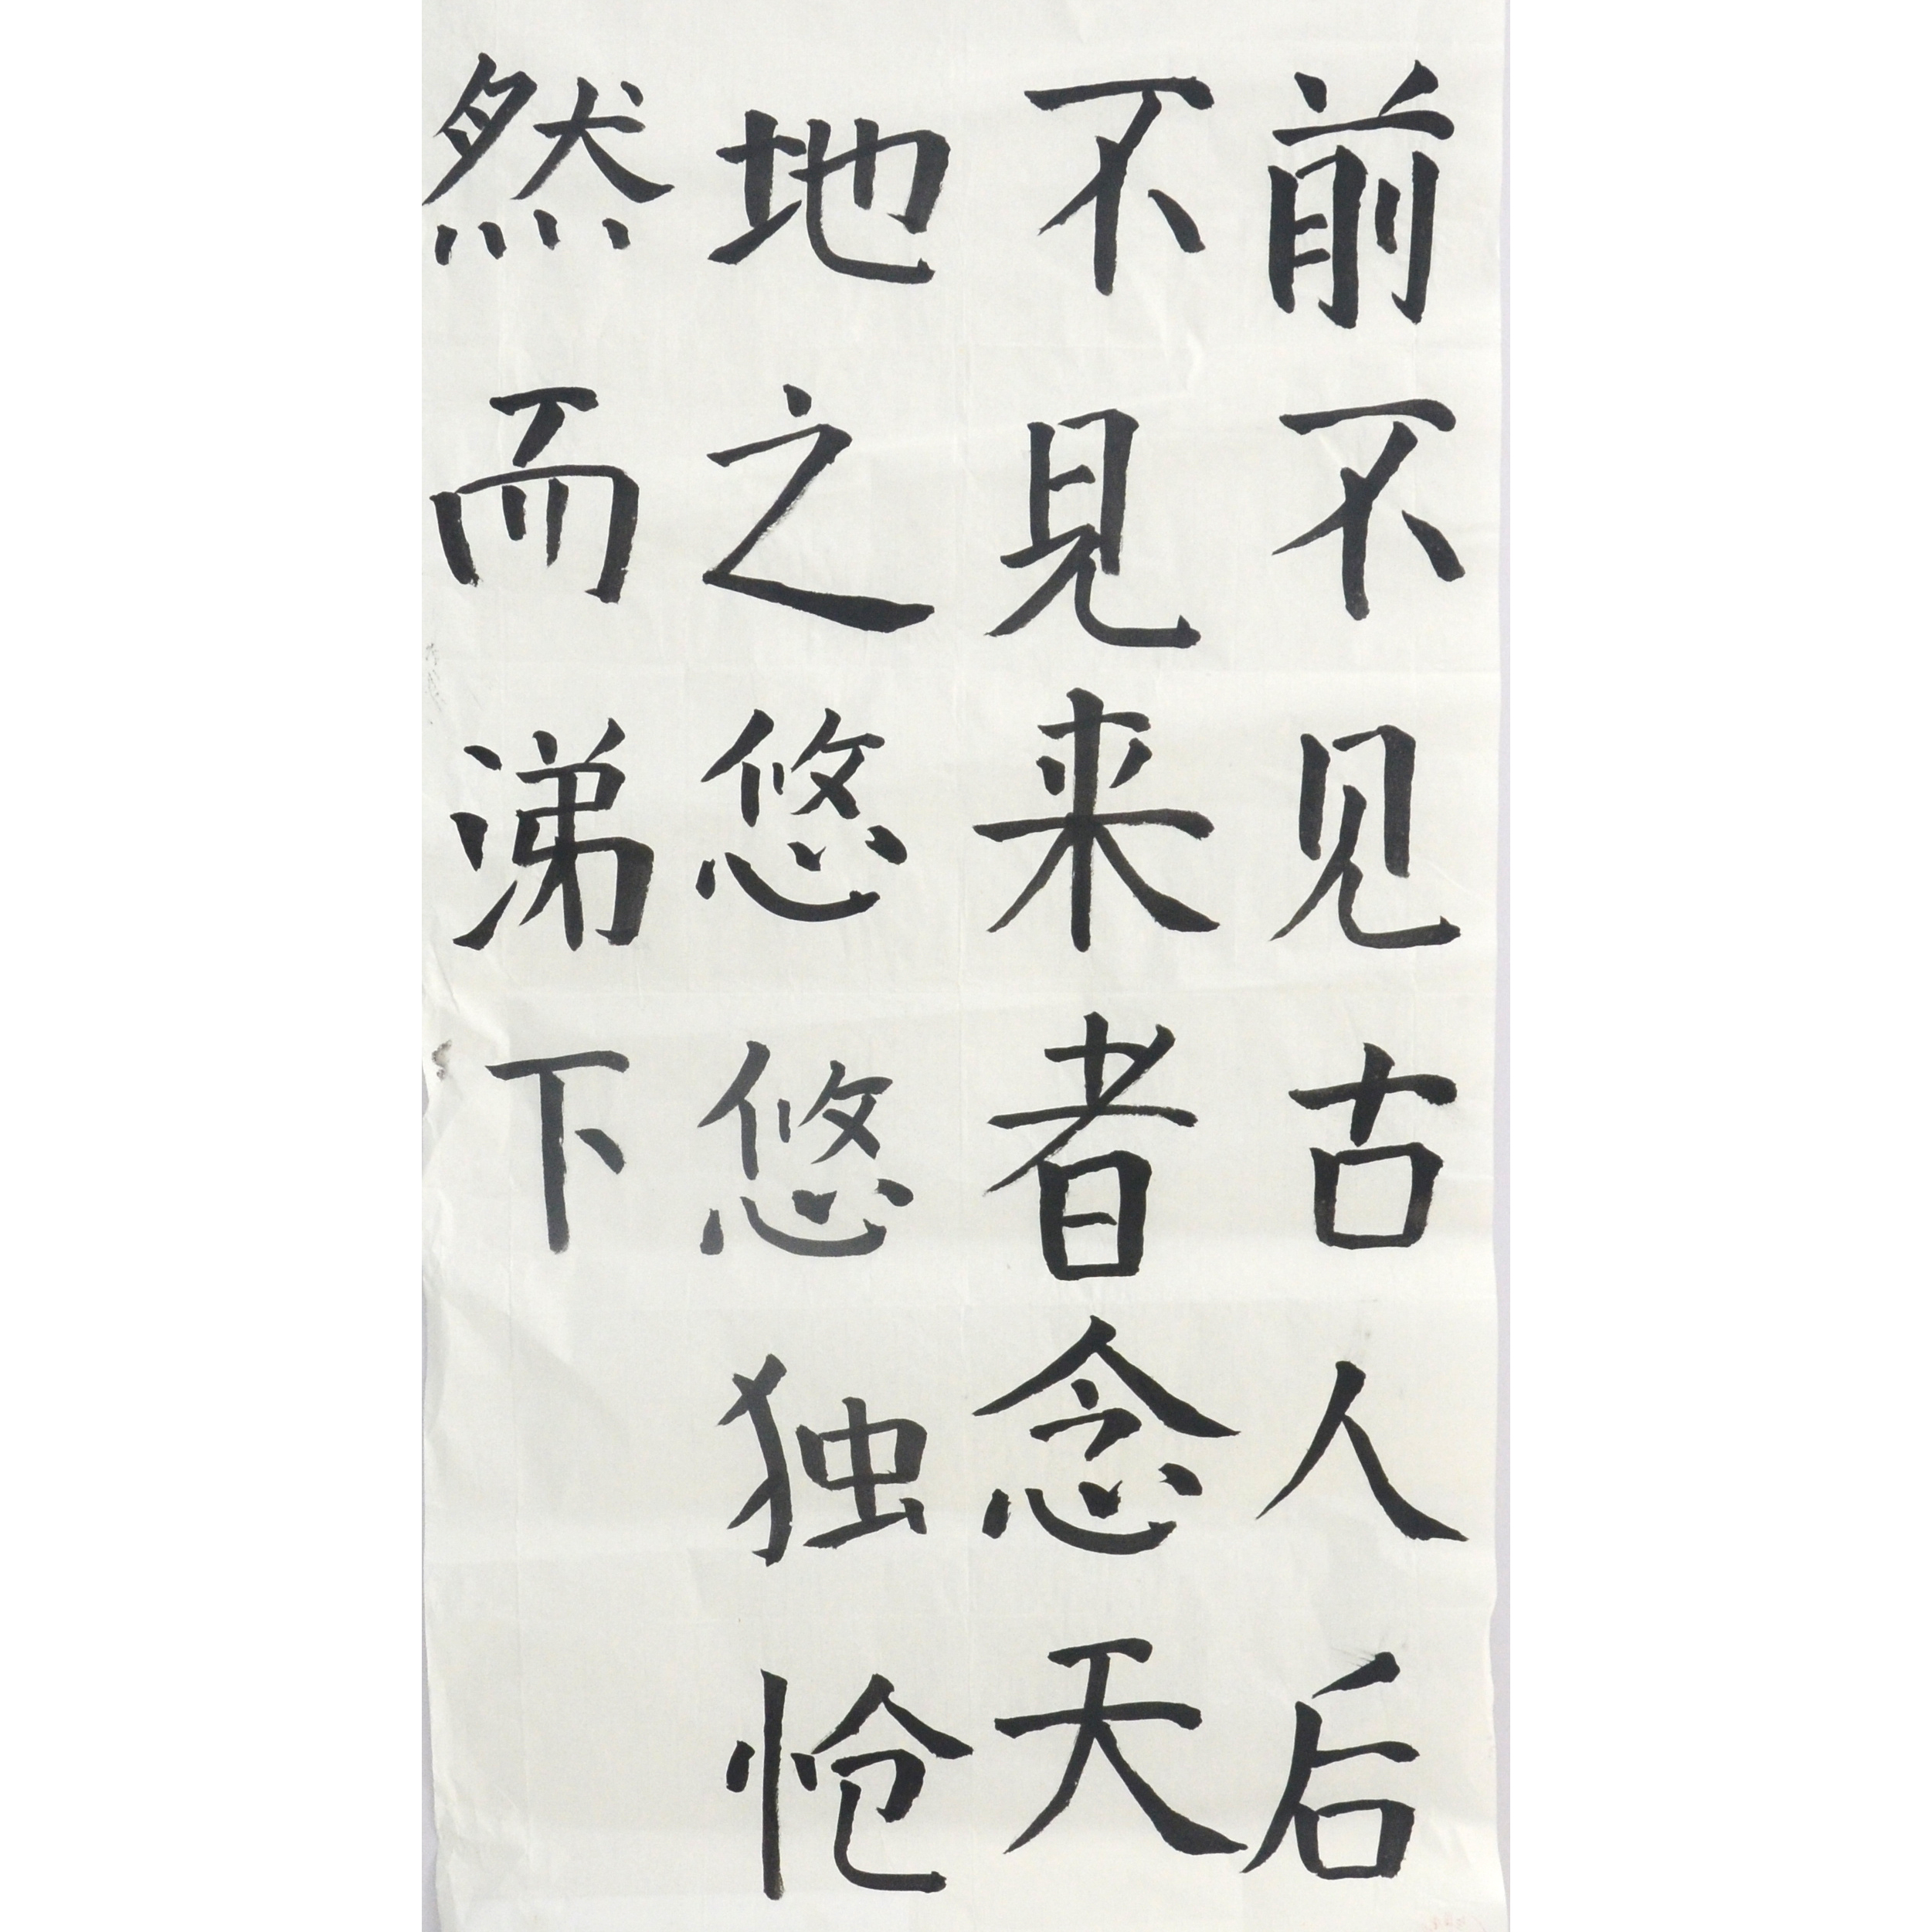 前不见古人后
不見来者念天
地之悠悠独怆
然而涕下